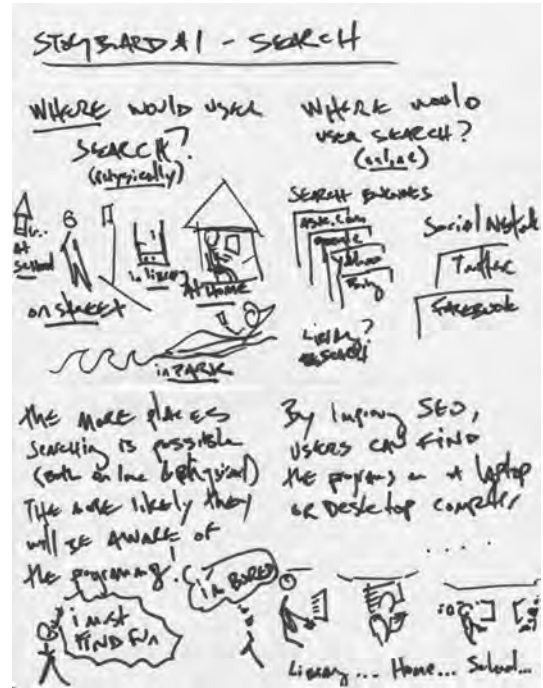 STORYBOARD #1 - SEARCH
WHERE WOULD USER
SEARCH?
(physically)
at
school
on street
in library
AT HOME
in PARK
WHERE would
USER SEARCH?
(online)
SEARCH ENGINES
ASK.COM
google
yahoo
Bing
Library?
SEARCH
Social Network
Twitter
FACEBOOK
The MORE places
Searching is possible
(Both on line & physical)
THE more likely they
will BE AWARE of
the programming!
i must
FIND FUN
i'm BORED
By Improving SEO,
USERS CAN FIND
the programs on a Laptop
or Desktop computer
....
Library... Home... School...